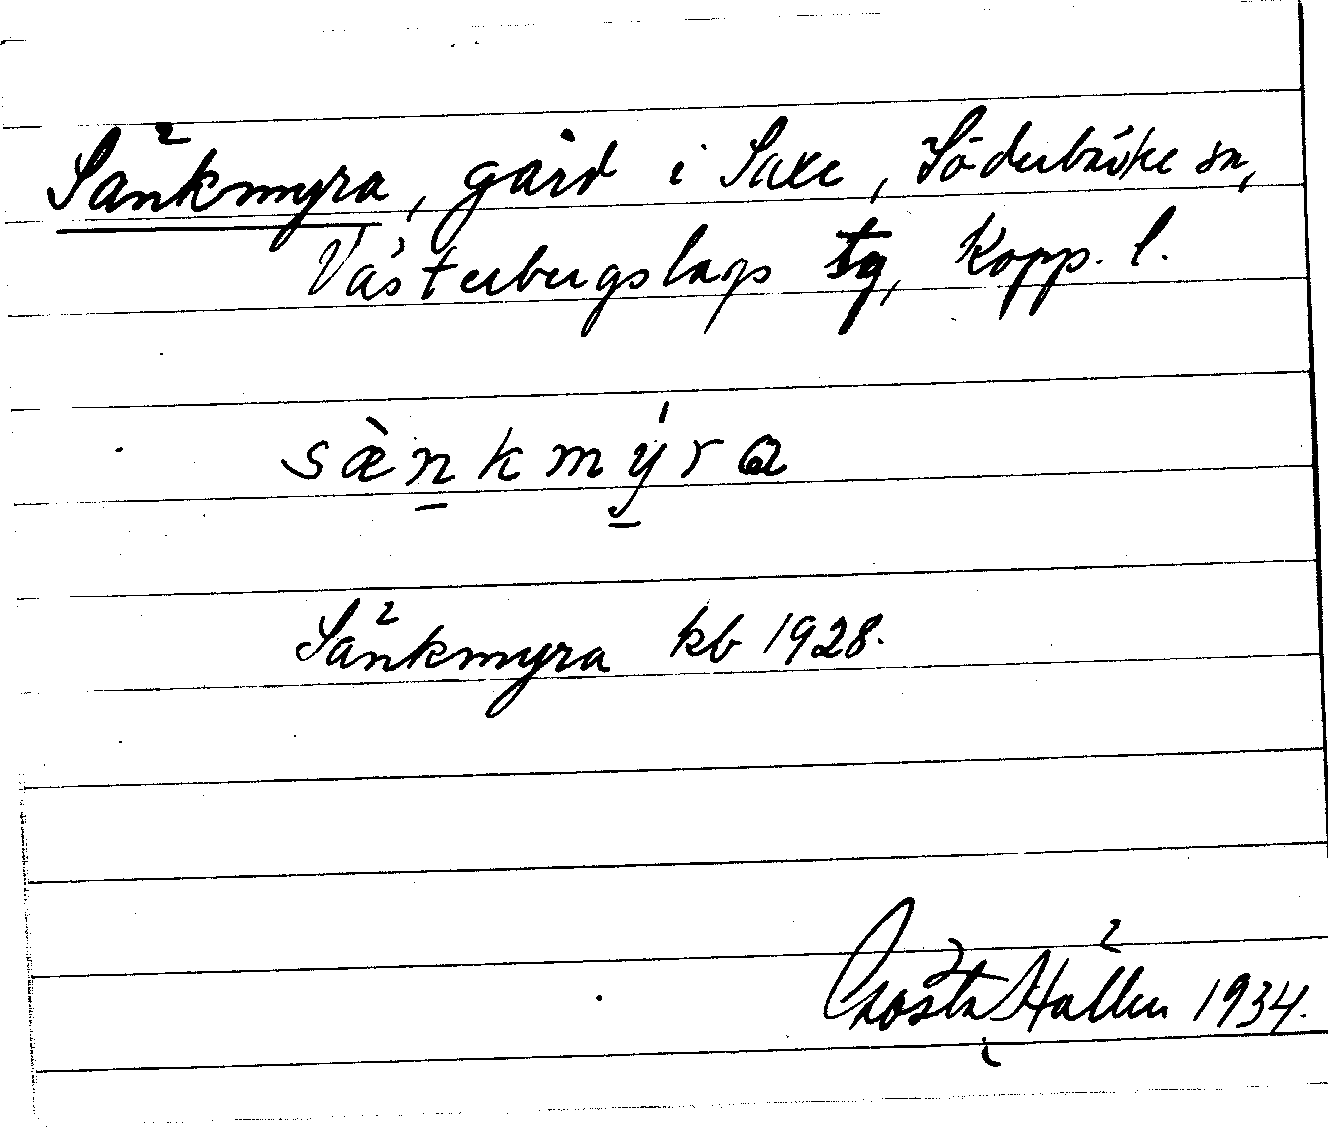 Sänkmyra, gård i Saxe, Söderbärke sn,
Västerbergslags tg, Kopp. l.
sæ̀n̠kmý̠ra
Sänkmyra kb 1928.
Gösta Hallén 1934.